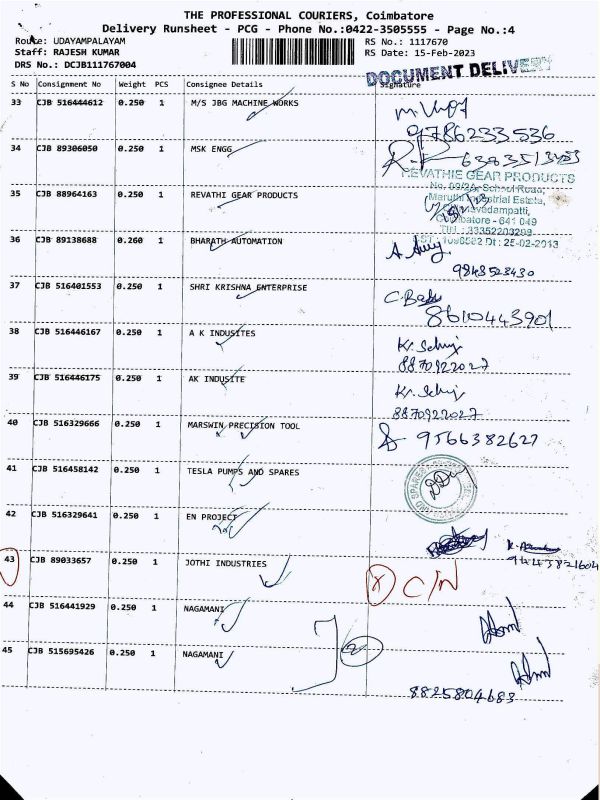 THE PROFESSIONAL COURIERS, Coimbatore
Delivery Runsheet - PCG - Phone No.:0422-3505555 - Page No.:4
Route: UDAYAMPALAYAM RS No.: 1117670
Staff: RAJESH KUMAR RS Date: 15-Feb-2023
DRS No.: DCJB111767004
DOCUMENT DELIVERY
S No Consignment No Weight PCS Consignee Details Signature
33 CJB 516444612 0.250 1 M/S JBG MACHINE WORKS
9786233536
34 CJB 89306050 0.250 1 MSK ENGG
35 CJB 88964163 0.250 1 REVATHI GEAR PRODUCTS
REVATHIE GEAR PRODUCTS
No. 89/2A, School Road,
Maruthi Industrial Estate,
Coimbatore - 641 049
36 CJB 89138688 0.260 1 BHARATH AUTOMATION
9843523430
37 CJB 516401553 0.250 1 SHRI KRISHNA ENTERPRISE
8610443901
38 CJB 516446167 0.250 1 A K INDUSITES
8870922027
39 CJB 516446175 0.250 1 AK INDUSITE
8870922027
40 CJB 516329666 0.250 1 MARSWIN PRECISION TOOL
9566382627
41 CJB 516458142 0.250 1 TESLA PUMPS AND SPARES
42 CJB 516329641 0.250 1 EN PROJECT
43 CJB 89033657 0.250 1 JOTHI INDUSTRIES
C/N
44 CJB 516441929 0.250 1 NAGAMANI
45 CJB 515695426 0.250 1 NAGAMANI
8825804683